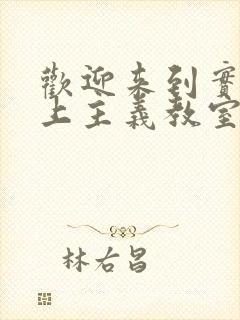 歡迎來到實
上主義教室
林右昌